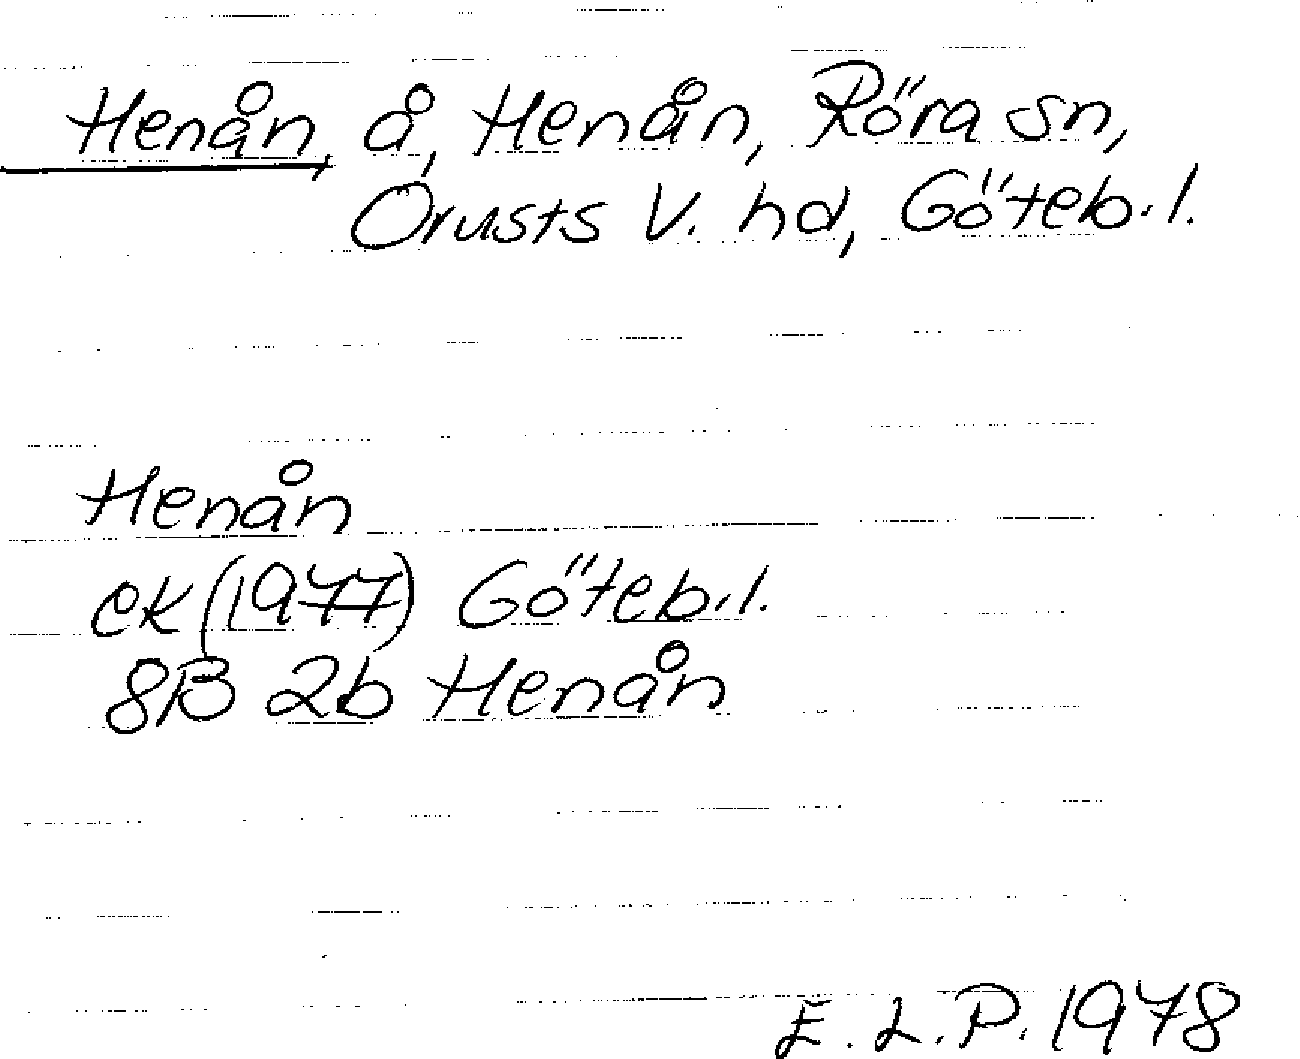 Henån, å, Henån, Röra sn,
Orusts V. hd, Göteb.l.
Henån
ek (1977) Göteb.l.
8B 2b Henån
E.L.P. 1978